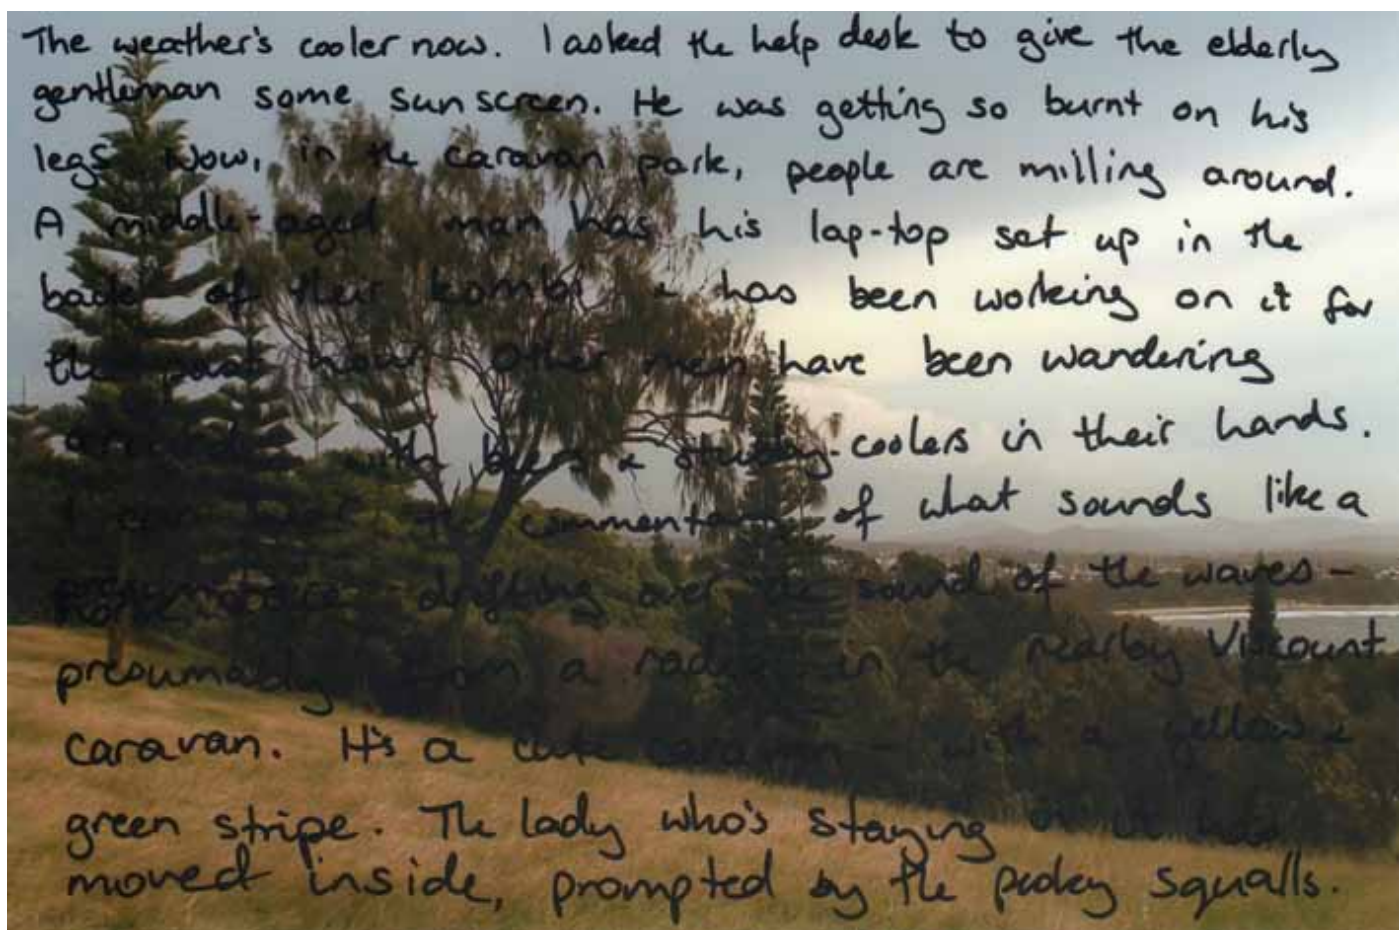 The weather's cooler now. I asked the help desk to give the elderly
gentleman some sunscreen. He was getting so burnt on his
legs. Now, in the caravan park, people are milling around.
A middle-aged man has his lap-top set up in the
back of their kombi & has been working on it for
the past hour. Other men have been wandering
with beers & stubby-coolers in their hands.
I can hear the commentary of what sounds like a
drifting over the sound of the waves -
presumably from a radio in the nearby Viscount
caravan. It's a cute caravan - with a yellow &
green stripe. The lady who's staying in it has
moved inside, prompted by the pesky squalls.